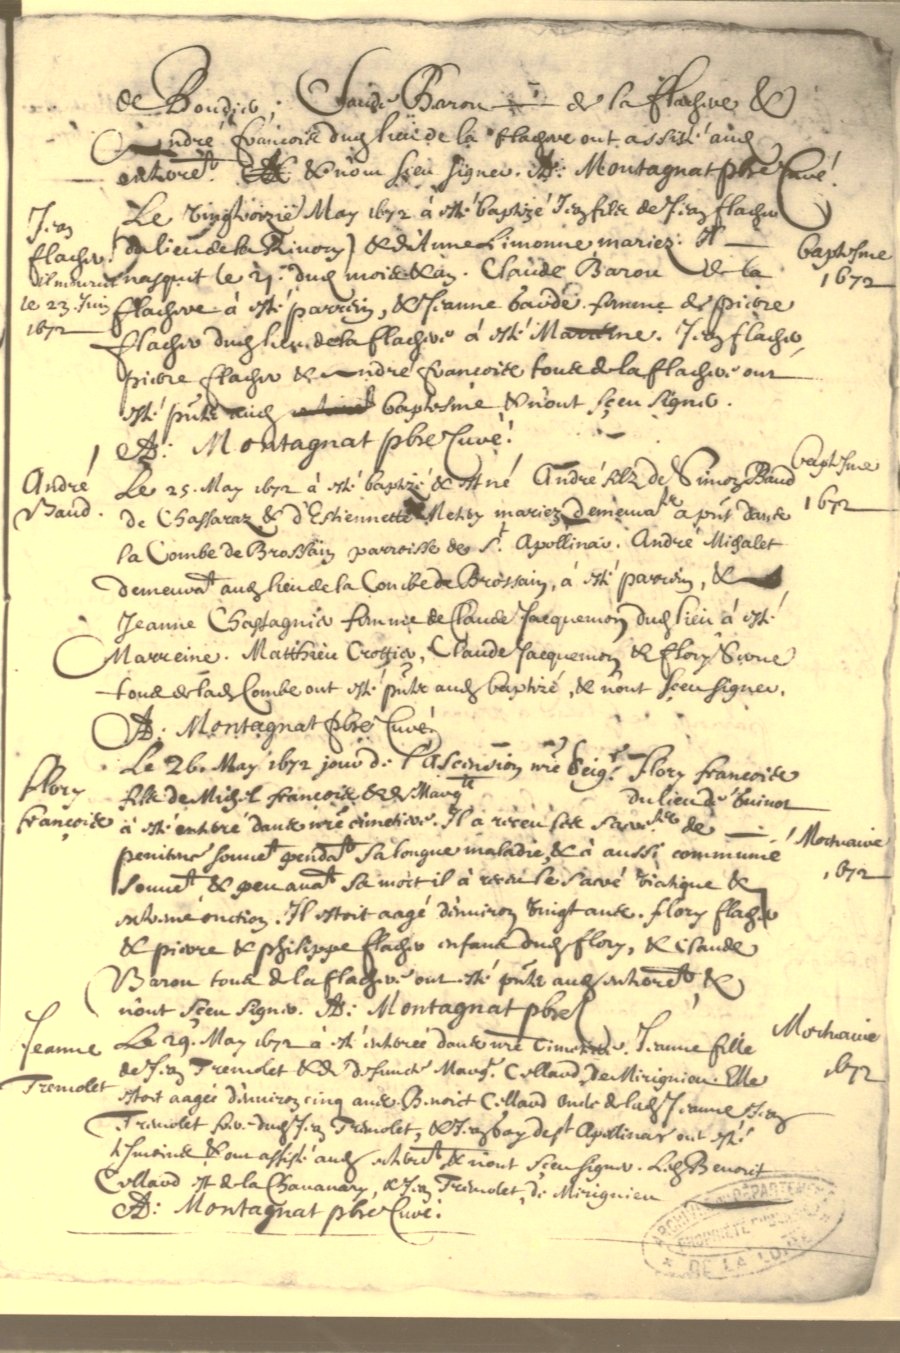 de Boudier; Claude Baron de la flachere &
André françoise dud lieu de la flachere ont assisté aud
enterremt. & n'ont sceu signer. A: Montagnat pbre Curé.
Jean
flacher.
il mourut
le 23 Juin
1672
Le May 1672 à esté baptizé Jean filz de Jean flacher
du lieu de la & d'Anne Limonne mariez. Il
nasquit le 21. dud mois & an. Claude Baron de la
flachere à esté parrein, & Jeanne baude femme de pierre
flacher dud lieu de la flachere à esté Marreine. Jean flacher
pierre flacher & André françoise tous de la flachere ont
esté pnts aud baptesme & n'ont sceu signer.
A: Montagnat pbre Curé.
baptesme
1672
André
Baud.
Le 25. May 1672 à esté baptizé & est né André filz de Simon Baud
de Chassaraz & d'Estiennette mariez demeurants à pnt dans
la Combe de Brossain parroisse de St. Apollinar. André Michalet
demeurat aud lieu de la Combe de Brossain, à esté parrein, &
Jeanne Chastagnier femme de Claude Jacquemon dud lieu à esté
Marreine. Matthieu Crottier, Claude Jacquemon & flory
tous de lad Combe ont esté pnts aud baptizé, & n'ont sceu signer.
A: Montagnat pbre Curé
baptesme
1672
flory
françoise
Le 26. May 1672 jour de l'Ascension nre Seigr. flory françoise
filz de Michel françoise & de Margte du lieu de
à esté enterré dans nre cimetiere. Il a receu les de
penitence souvet pendat sa longue maladie, & à aussi communié
souvet & peu avat sa mort il à receu le sacré viatique &
extreme onction. Il estoit aagé d'environ vingt ans. flory flacher
& pierre & philippe flacher enfans dud flory, & Claude
Baron tous de la flachere ont esté pnts aud enterremt, &
n'ont sceu signer. A: Montagnat pbre
Mortuaire
1672
Jeanne
Tremolet
Le 29. May 1672 à esté enterrée dans nre Cimetiere. Jeanne fille
de Jean Tremolet & de defuncte Margte. Collaud, de Mirignieu. Elle
estoit aagée d'environ cinq ans. Benoict Collaud oncle de lad Jeanne Jean
Tremolet frere dud Jean Tremolet, & Jean de St Apollinar ont esté
tesmoins & ont assisté aud enterremt & n'ont sceu signer. Led Benoict
Collaud est de la Chavanary, & Jean Tremolet, de Mirignieu
A: Montagnat pbre Curé.
Mortuaire
1672
ARCHIVES DU DÉPARTEMENT
PROPRIÉTÉ PUBLIQUE
* DE LA LOIRE *